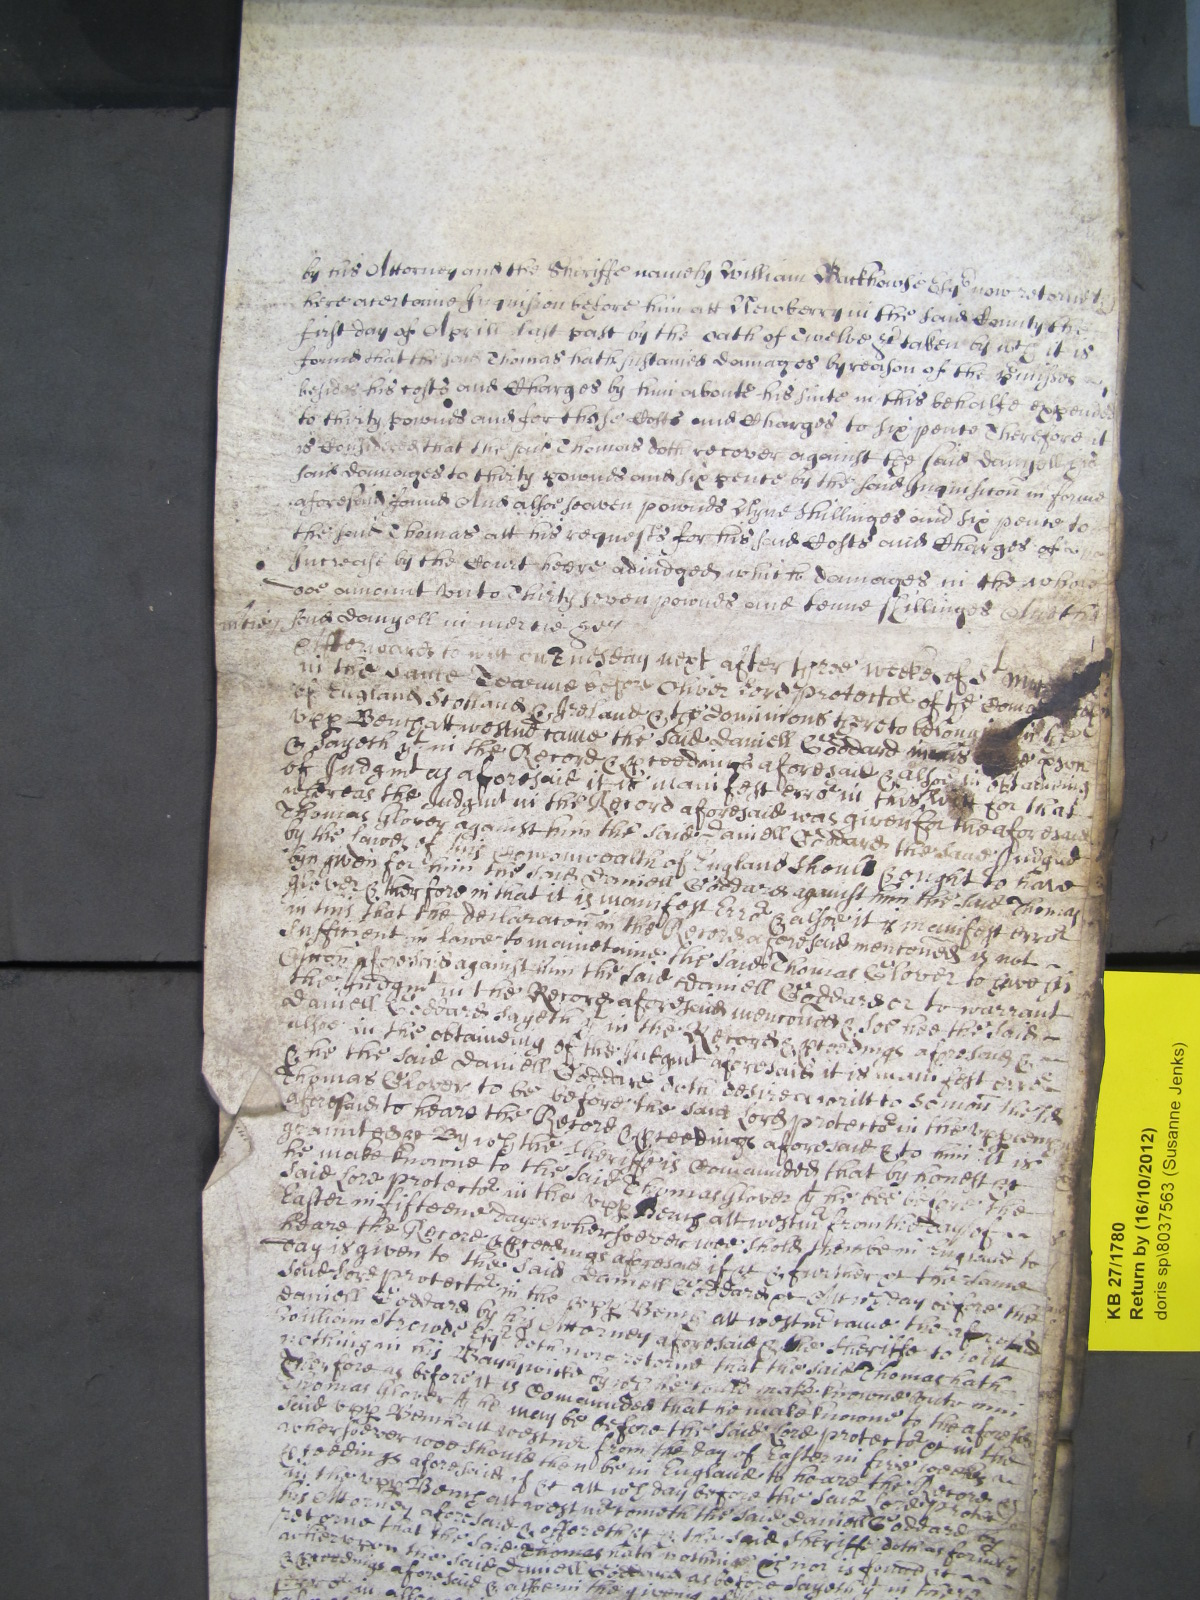 by his Attorney and the Sheriffe namely William Backhowse Esqr now retorneth
here a certaine Inquisicon before him att Newberry in the said County the
first day of Aprill last past by the oath of Twelve &c taken by wch it is
found that the said Thomas hath sustained damages by reason of the pmisses
besides his costs and Charges by him aboute his suite in this behalfe expended
to thirty pownds and for those Costs and Charges to six pence Therefore it
is Considered that the said Thomas doth recover against the said Danyell his
said damages to thirty pownds and six pence by the said Inquisicon in forme
aforesaid found And alsoe seaven pownds Nyne shillinges and six pence to
the said Thomas att his requeste for his said Costs and Charges of
Increase by the Court heere adiudged which damages in the whole
doe amount vnto Thirty seven pownds and tenne shillinges And the
said Danyell in mercie &c
Afterwards to witt on Tuesday next after three weekes of St
in the same Tearme before Oliver Lord Protector of the Comonwealth
of England Scotland & Ireland & the dominions thereto belonging in the
vpp Bench att westmr came the said Daniell Goddard in pson
& sayeth yt in the Record & pceedings aforesaid & alsoe in obtaineing
of Judgmt as aforesaid it is manifest error in this for that
whereas the Judgmt in the Record aforesaid was given for the aforesaid
Thomas Glover against him the said Daniell Goddard the said Judgmt
by the lawes of this Comonwealth of England should & ought to have
byn given for him the said Daniell Goddard against him the said Thomas
Glover & therfore in that it is manifest Error & alsoe it is manifest error
in this that the declaracon in the Record aforesaid mencoed is not
sufficient in lawe to maintaine the said Thomas Glover to have his
Accon aforesaid against him the said Daniell Goddard or to warrant
the Judgmt in the Record aforesaid mencoed & soe hee the said
Daniell Goddard sayeth yt in the Record & pceedings aforesaid &
alsoe in the obtaining of the Judgmt aforesaid it is manifest error
& he the said Daniell Goddard doth desire a writt to somon the sd
Thomas Glover to be before the said Lord protector in the vpp Bench
aforesaid to heare the Record & pceedings aforesaid & to him it is
graunted &c By wch the sheriffe is Comaunded that by honest &c
he make knowne to the said Thomas Glover yt he bee before the
said Lord protector in the vpp Bench att westmr from the day of
Easter in fifteene dayes wheresoever wee should then be in England to
heare the Record & pceedings aforesaid if &c & further &c the same
day is given to the said Daniell Goddard &c Att wch day before the
said Lord protector in the vpp Bench att westmr came the aforesaid
Daniell Goddard by his Attorney aforesaid & the sheriffe to witt
William Strowde Esqr doth now retorne that the said Thomas hath
nothing in his Baylywick by wch he could make knowne vnto him
Therfore as before it is Comaunded that he make knowne to the aforesaid
Thomas Glover yt he may be before the said Lord protector &c in the
said vpp Bench att westmr from the day of Easter in five weekes
wheresoever wee should then be in England to heare the Record &
pceedings aforesaid if &c att wch day before the said Lord protector
in the vpp Bench att westmr cometh the said Daniell Goddard by
his Attorney aforesaid & offereth &c & the said sheriffe doth as formerly
retorne that the said Thomas hath nothing &c nor is found &c
wherevpon the said Daniell Goddard as before sayeth yt in the
& pceedings aforesaid & alsoe in the giveing
KB 27/1780
Return by (16/10/2012)
doris sp\8037563 (Susanne Jenks)